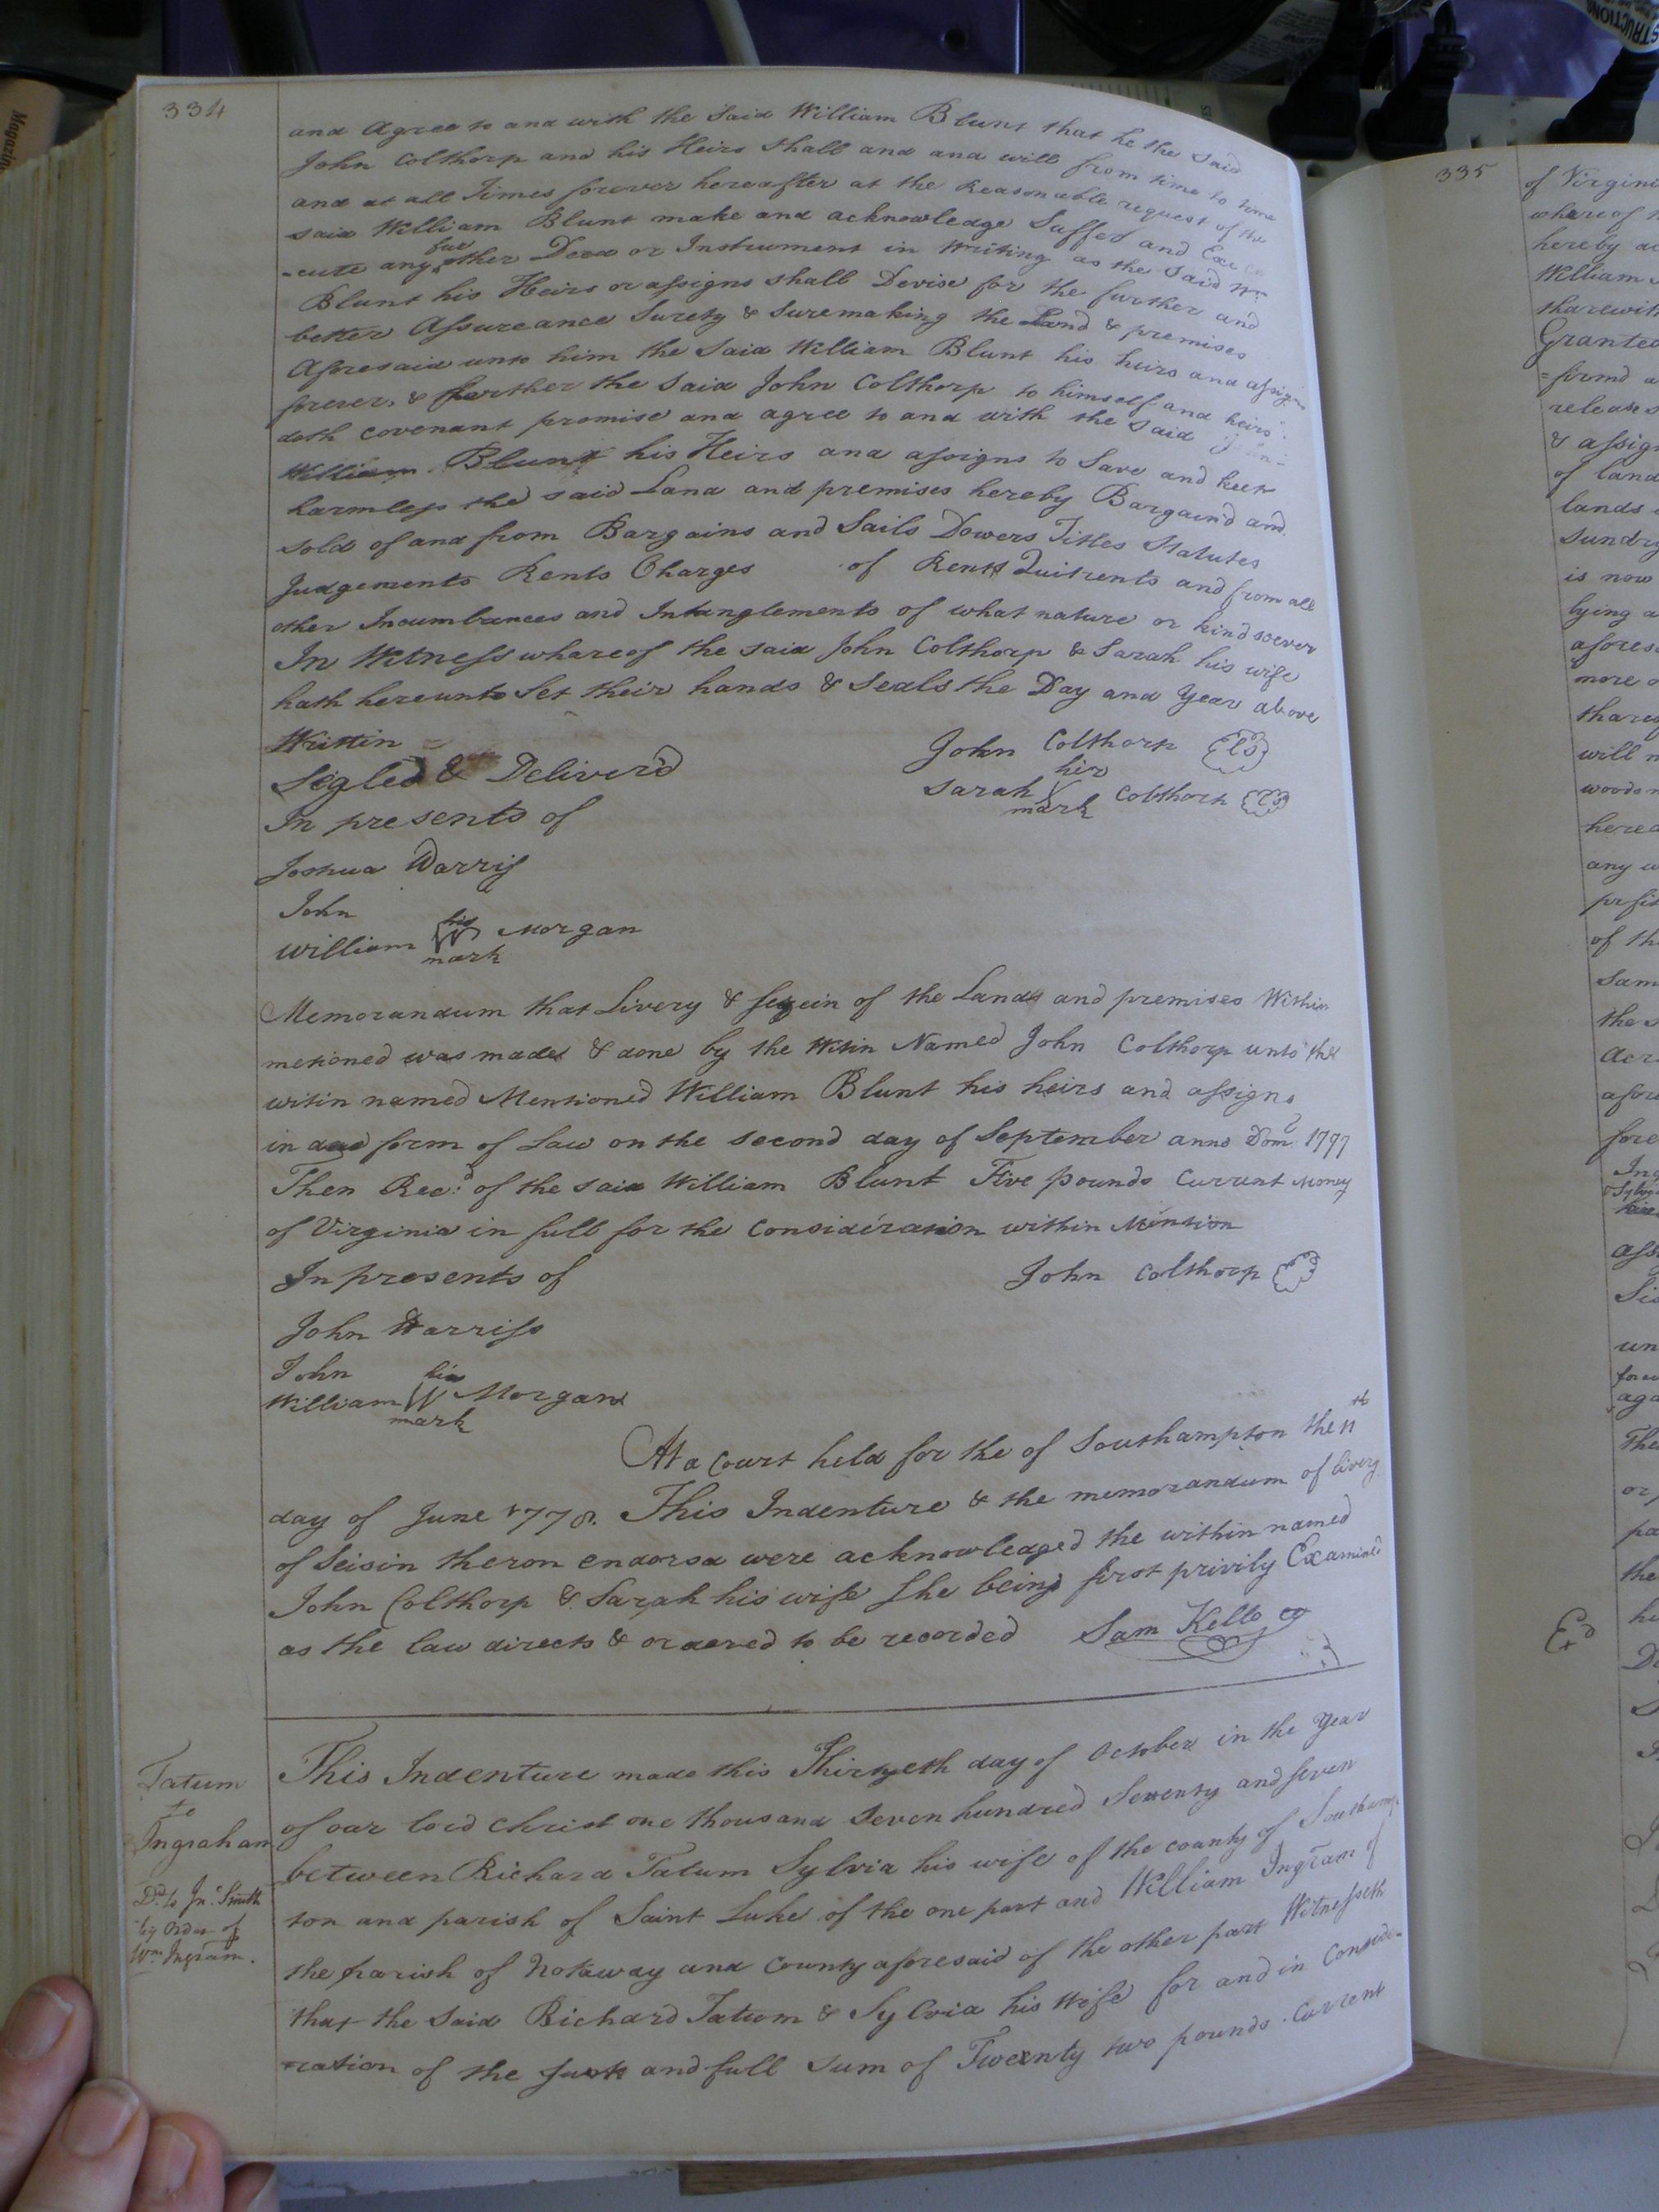 334
and Agree to and with the Said William Blunt that he the Said
John Colthorp and his Heirs Shall and and will from time to time
and at all Times forever hereafter at the Reasonable request of the
said William Blunt make and acknowledge Suffer and Exe
-cute any other Deed or Instrument in Writing as the Said Wm
Blunt his Heirs or assigns shall Devise for the further and
better Assureance Surety & Suremaking the Land & premises
Aforesaid unto him the Said William Blunt his heirs and assigns
forever, & further the Said John Colthorp to himself and heirs
doth covenant promise and agree to and with the Said
William Blunt his Heirs and assigns to Save and keep
harmless the said Land and premises hereby Bargain'd and
sold of and from Bargains and Sails Dowers Titles Statutes
Judgements Rents Charges of Rents Quitrents and from all
other Incumbrances and Intanglements of what nature or kind soever
In Witness whareof the said John Colthorp & Sarah his wife
hath hereunto Set their hands & Seals the Day and Year above
Writtin
John Colthorp (LS)
Sigled & Deliver'd
her
Sarah X Colthorp (LS)
mark
In presents of
Joshua Harriss
John
his
William W Morgan
mark
Memorandum that Livery & Seyzein of the Lands and premises Within
metioned was made & done by the Witin Named John Colthorp unto the
witin named Mentioned William Blunt his heirs and assigns
in due form of Law on the second day of September anno Dom. 1777
Then Rec.d of the said William Blunt Five pounds Current Money
of Virginia in full for the Consideration within Mention
In presents of
John Colthorp
John Harriss
John
his
William W Morgan
mark
At a Court held for the of Southampton the 11th
day of June 1778. This Indenture & the memorandum of livery
of Seisin theron endorsd were acknowledged the within named
John Colthorp & Sarah his wife She being first privily Examined
as the law directs & ordered to be recorded Sam Kello
Tatum
to
Ingraham
Dd. to Jno. Smith
by Order of
Wm. Ingram.
This Indenture made this Thirtyeth day of October in the Year
of our lord Christ one thousand Seven hundred Seventy and seven
between Richard Tatum Sylvia his wife of the county of Southamp
ton and parish of Saint Luke of the one part and William Ingram of
the parish of Notoway and County aforesaid of the other part Witnesseth
that the Said Richard Tatum & Sylvia his Wife for and in Conside-
-ration of the Just and full Sum of Tweenty two pounds Current
335
of Virginia
whereof
hereby
William
tharewith
Granted
=firmd
release
& assigns
of land
lands
Sundry
is now
lying
more
will
any
of the
the
Exd